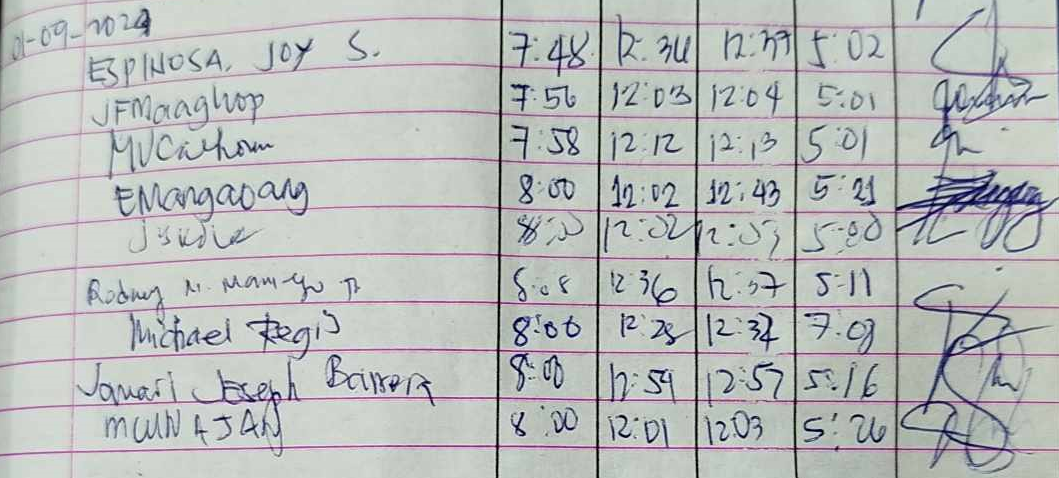 01-09-2024
ESPINOSA, JOY S. 7:48 12:36 12:37 5:02
JFMaaghop 7:56 12:03 12:04 5:01
MVCalhoun 7:58 12:12 12:13 5:01
EMangaoang 8:00 12:02 12:43 5:21
8:00 12:02 12:03 5:00
Rodney M. 8:08 12:36 12:37 5:11
Michael Regis 8:06 12:28 12:32 7:08
Joseph 8:00 12:54 12:57 5:16
8:00 12:01 12:03 5:26